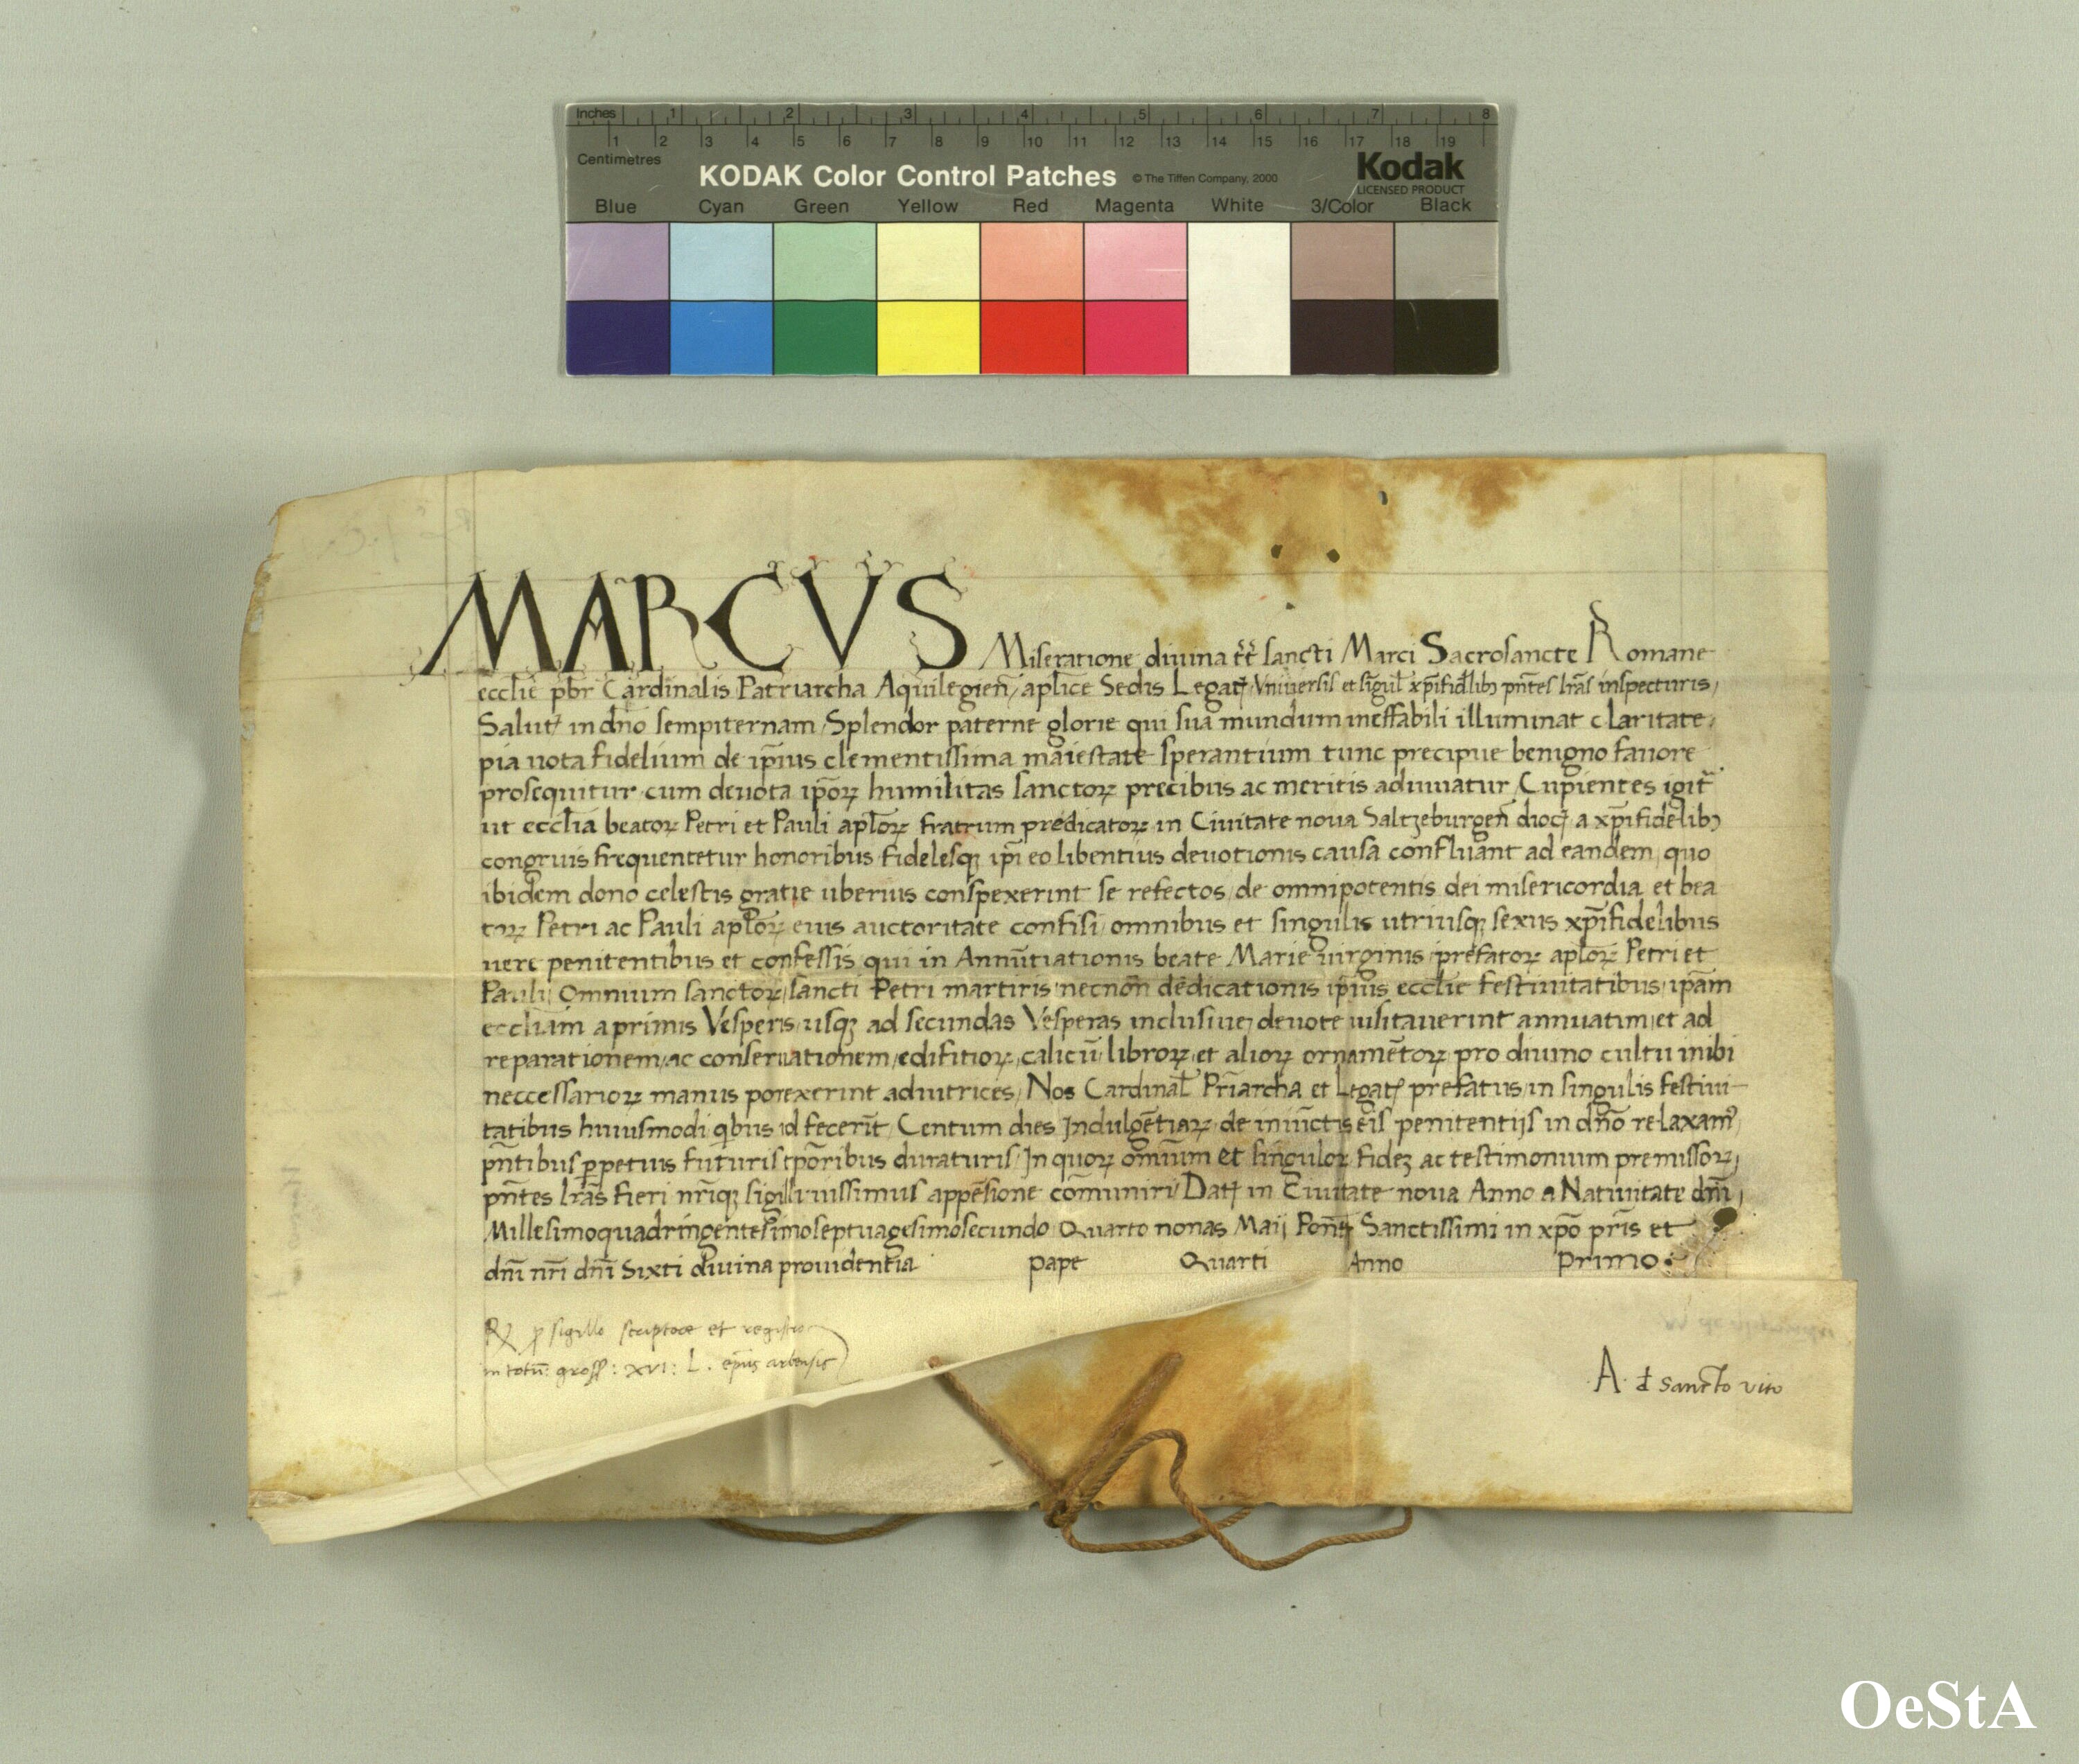 Inches 1 2 3 4 5 6 7 8
1 2 3 4 5 6 7 8 9 10 11 12 13 14 15 16 17 18 19
Centimetres
KODAK Color Control Patches © The Tiffen Company, 2000 Kodak
LICENSED PRODUCT
Blue Cyan Green Yellow Red Magenta White 3/Color Black
MARCVS Miseratione diuina tt̄ sancti Marci Sacrosancte Romane
eccl̄ie pb̄r Cardinalis Patriarcha Aquilegien̄ / apl̄ice Sedis Legatꝰ Vniuersis et singul̄ xp̄ifidelibꝫ pn̄tes lr̄as inspecturis /
Salutē in dn̄o sempiternam / Splendor paterne glorie qui sua mundum ineffabili illuminat claritate /
pia uota fidelium de ip̄ius clementissima maiestate sperantium tunc precipue benigno fauore
prosequitur cum deuota ip̄oꝝ humilitas sanctoꝝ precibus ac meritis adiuuatur / Cupientes igit̄
ut eccl̄ia beatoꝝ Petri et Pauli apl̄oꝝ fratrum predicatoꝝ in Ciuitate noua Saltzeburgen̄ dioc̄ a xp̄ifidelibꝫ
congruis frequentetur honoribus fidelesqꝫ ip̄i eo libentius deuotionis causa confluant ad eandem / quo
ibidem dono celestis gratie uberius conspexerint se refectos / de omnipotentis dei misericordia et bea
toꝝ Petri ac Pauli apl̄oꝝ eius auctoritate confisi / omnibus et singulis utriusqꝫ sexus xp̄ifidelibus
uere penitentibus et confessis qui in Annūtiationis beate Marie uirginis / prefatoꝝ apl̄oꝝ Petri et
Pauli / Omnium sanctoꝝ / sancti Petri martiris / necnon dedicationis ip̄ius eccl̄ie festiuitatibus / ip̄am
eccl̄iam a primis Vesperis / usqꝫ ad secundas Vesperas inclusiue / deuote uisitauerint annuatim / et ad
reparationem / ac conseruationem / edifitioꝝ / calicū / libroꝝ / et alioꝝ ornamētoꝝ / pro diuino cultu inibi
neccessarioꝝ manus porexerint adiutrices / Nos Cardinal̄ Pr̄iarcha et Legatꝰ prefatus / in singulis festiui
tatibus huiusmodi qibus id fecerīt / Centum dies Indulgētiaꝝ / de iniūctis eis penitentijs in dn̄o relaxamꝰ /
pn̄tibus ꝑpetuis futuris tp̄oribus duraturis / In quoꝝ omīum et singuloꝝ fidē ac testimonium premissoꝝ /
pn̄tes lr̄as fieri nr̄iqꝫ sigilli iussimus appēsione cōmuniri / Dat̄ in Ciuitate noua Anno a Natiuitate dn̄i /
Millesimoquadringentesimoseptuagesimosecundo Quarto nonas Maij Pon̄ Sanctissimi in xp̄o pr̄is et
dn̄i nr̄i dn̄i Sixti diuina prouidentia pape Quarti Anno Primo :
Rꝫ ꝓ sigillo scriptore et registro
in totū gross : xvi : L . ep̄us arbensis
A . d̄ sancto vito
OeStA